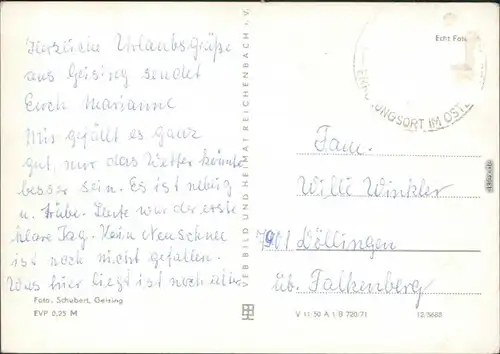 Herzliche Urlaubsgrüße
aus Geising sendet
Euch Marianne
Mir gefällt es ganz
gut, nur das Wetter könnte
besser sein. Es ist neblig
u. trübe. Heute war der erste
klare Tag. Kein Neuschnee
ist noch nicht gefallen.
Was hier liegt ist noch alter
Foto: Schubert, Geising
EVP 0,25 M
VEB BILD UND HEIMAT REICHENBACH i. V.
Echt Foto
ERHOLUNGSORT IM OSTE
Fam.
Willi Winkler
7901 Döllingen
üb. Falkenberg
V 11 50 A 1 B 720/71
12/5688